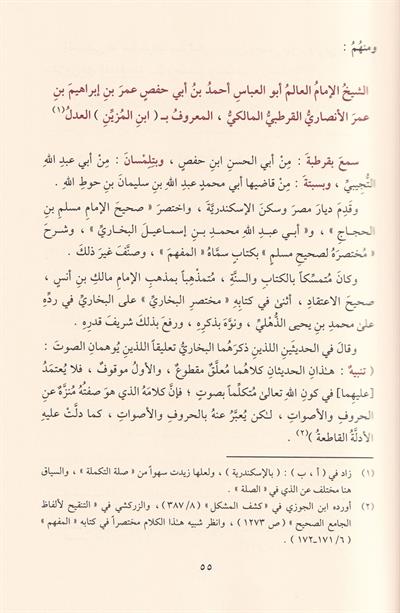 ومنهُمُ :
الشيخُ الإمامُ العالمُ أبو العباسِ أحمدُ بنُ أبي حفصٍ عمرَ بنِ إبراهيمَ بنِ
عمرَ الأنصاريُّ القرطبيُّ المالكيُّ ، المعروفُ بـ ( ابنِ المُزيِّنِ ) العدلُ(١)
سمعَ بقرطبةَ : مِنْ أبي الحسنِ ابنِ حفصٍ ، وبتِلِمْسانَ : مِنْ أبي عبدِ اللهِ
التُّجِيبيِّ ، وبسبتةَ : مِنْ قاضيها أبي محمدٍ عبدِ اللهِ بنِ سليمانَ بنِ حوطِ اللهِ .
وقَدِمَ ديارَ مصرَ وسكنَ الإسكندريَّةَ ، واختصرَ « صحيحَ الإمامِ مسلمِ بنِ
الحجاجِ » ، و« أبي عبدِ اللهِ محمدِ بنِ إسماعيلَ البخاريِّ » ، وشرحَ
« مُختصرَهُ لصحيحِ مسلمٍ » بكتابٍ سمَّاهُ « المفهمَ » ، وصنَّفَ غيرَ ذلكَ .
وكانَ مُتمسِّكاً بالكتابِ والسنَّةِ ، مُتمذْهِباً بمذهبِ الإمامِ مالكِ بنِ أنسٍ ،
صحيحَ الاعتقادِ ، أثنىٰ في كتابِهِ « مختصرِ البخاريِّ » على البخاريِّ في ردِّهِ
علىٰ محمدِ بنِ يحيى الذُّهْليِّ ، ونوَّهَ بذكرِهِ ، ورفعَ بذلكَ شريفَ قدرِهِ .
وقالَ في الحديثَينِ اللذينِ ذكرَهُما البخاريُّ تعليقاً اللذينِ يُوهمانِ الصوتَ :
( تنبيهٌ : هـٰذانِ الحديثانِ كلاهُما مُعلَّقٌ مقطوعٌ ، والأولُ موقوفٌ ، فلا يُعتمَدُ
[عليهِما] في كونِ اللهِ تعالىٰ مُتكلِّماً بصوتٍ ؛ فإنَّ كلامَهُ الذي هو صفتُهُ مُنزَّهٌ عنِ
الحروفِ والأصواتِ ، لـٰكن يُعبَّرُ عنهُ بالحروفِ والأصواتِ ، كما دلَّتْ عليهِ
الأدلَّةُ القاطعةُ )(٢) .
(١) زاد في ( أ ، ب ) : ( بالإسكندرية ) ، ولعلها زيدت سهواً من « صلة التكملة » ، والسياق
هنا مختلف عن الذي في « الصلة » .
(٢) أورده ابن الجوزي في « كشف المشكل » ( ٣٨٧/٨ ) ، والزركشي في « التنقيح لألفاظ
الجامع الصحيح » ( ص ١٢٧٣ ) ، وانظر شبيه هـٰذا الكلام مختصراً في كتابه « المفهم »
( ١٧١/٦-١٧٢ ) .
٥٥